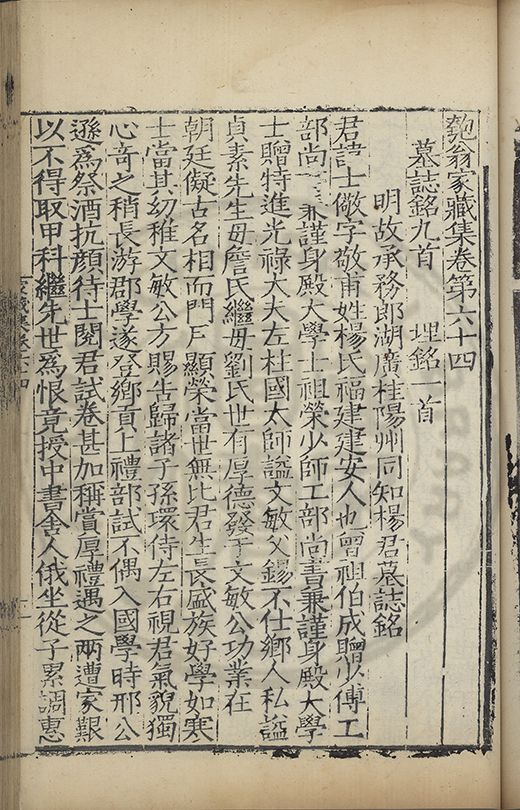 匏翁家藏集卷第六十四
墓誌銘九首　埋銘一首
明故承務郎湖廣桂陽州同知楊君墓誌銘
君諱士儆字敬甫姓楊氏福建建安人也曾祖伯成贈少傅工
部尚書兼謹身殿大學士祖榮少師工部尚書兼謹身殿大學
士贈特進光祿大夫左柱國太師諡文敏父錫不仕鄉人私諡
貞素先生母詹氏繼母劉氏世有厚德發于文敏公功業在
朝廷儗古名相而門戶顯榮當世無比君生長盛族好學如寒
士當其幼稚文敏公方賜告歸諸子孫環侍左右視君氣貌獨
心奇之稍長游郡學遂登鄉貢上禮部試不偶入國學時邢公
遜爲祭酒抗顔待士閱君試卷甚加稱賞厚禮遇之两遭家艱
以不得取甲科繼先世爲恨竟授中書舍人俄坐從子累謫惠